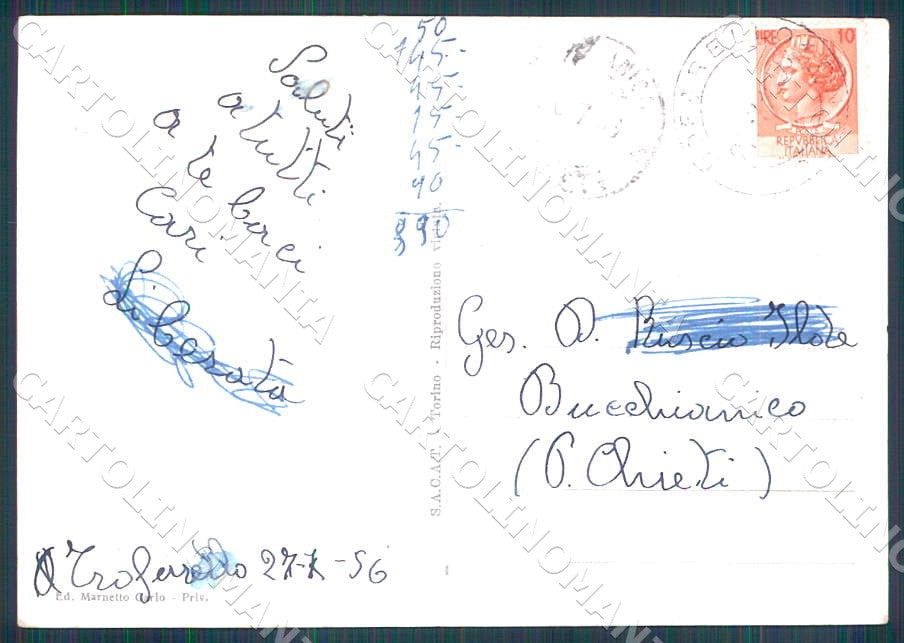 Saluti
a tutti
a te baci
Cari
Liberata
50
45-
45
15
45-
90
LIRE 10
REPVBBLICA
ITALIANA
S.A.C.A.T. - Torino - Riproduzione
Bucchianico
(P. Chieti)
27-X-56
Ed. Marnetto Carlo - Priv.
CARTOLINOMANIA